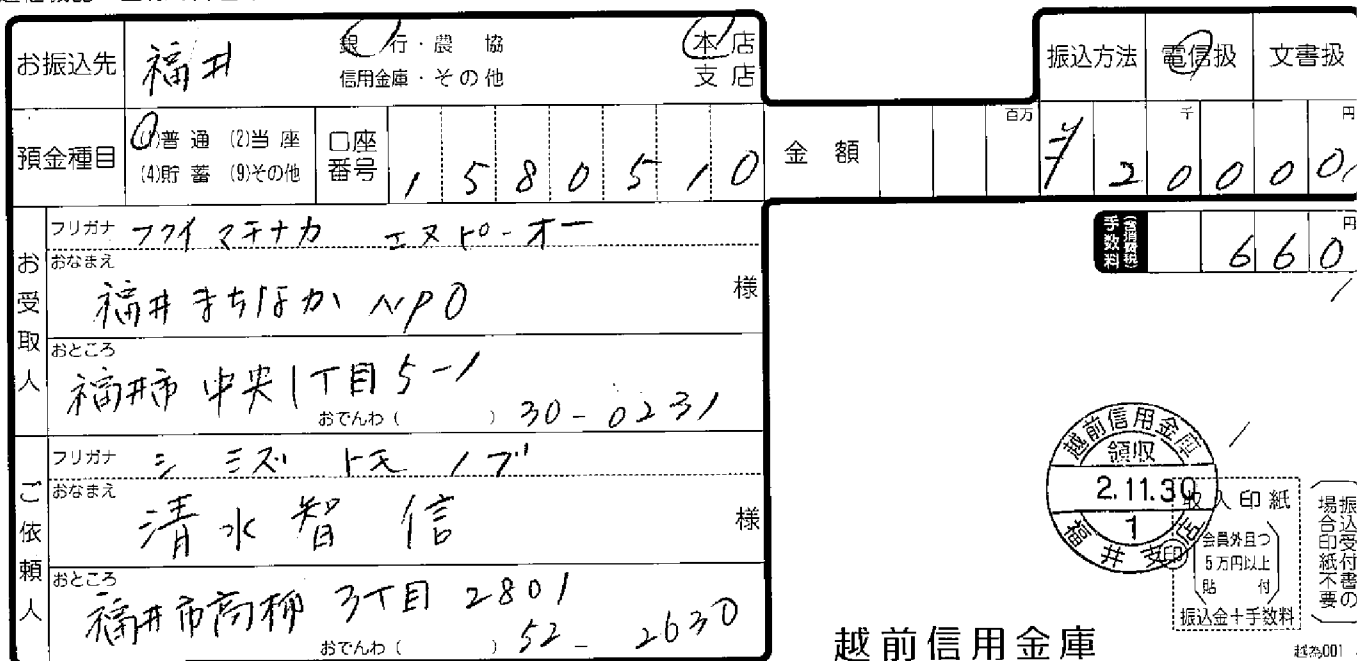 お振込先 福井 銀行・農協 本店
信用金庫・その他 支店
振込方法 電信扱 文書扱
預金種目 (1)普通 (2)当座
(4)貯蓄 (9)その他
口座番号 1580510
金額 百万 千 円
¥20000
フリガナ フクイマチナカ エヌピーオー
お受取人
おなまえ
福井まちなかNPO 様
おところ
福井市中央1丁目5-1
おでんわ( ) 30-0231
手数料 (含消費税) 660 円
フリガナ シミズ トモノブ
ご依頼人
おなまえ
清水智信 様
おところ
福井市高柳3丁目2801
おでんわ( ) 52-2630
越前信用金庫
領収
2.11.30
1
福井支店
収入印紙
会員外且つ
5万円以上
貼付
印
振込金+手数料
振込受付書の
場合印紙不要
越前信用金庫
越為001